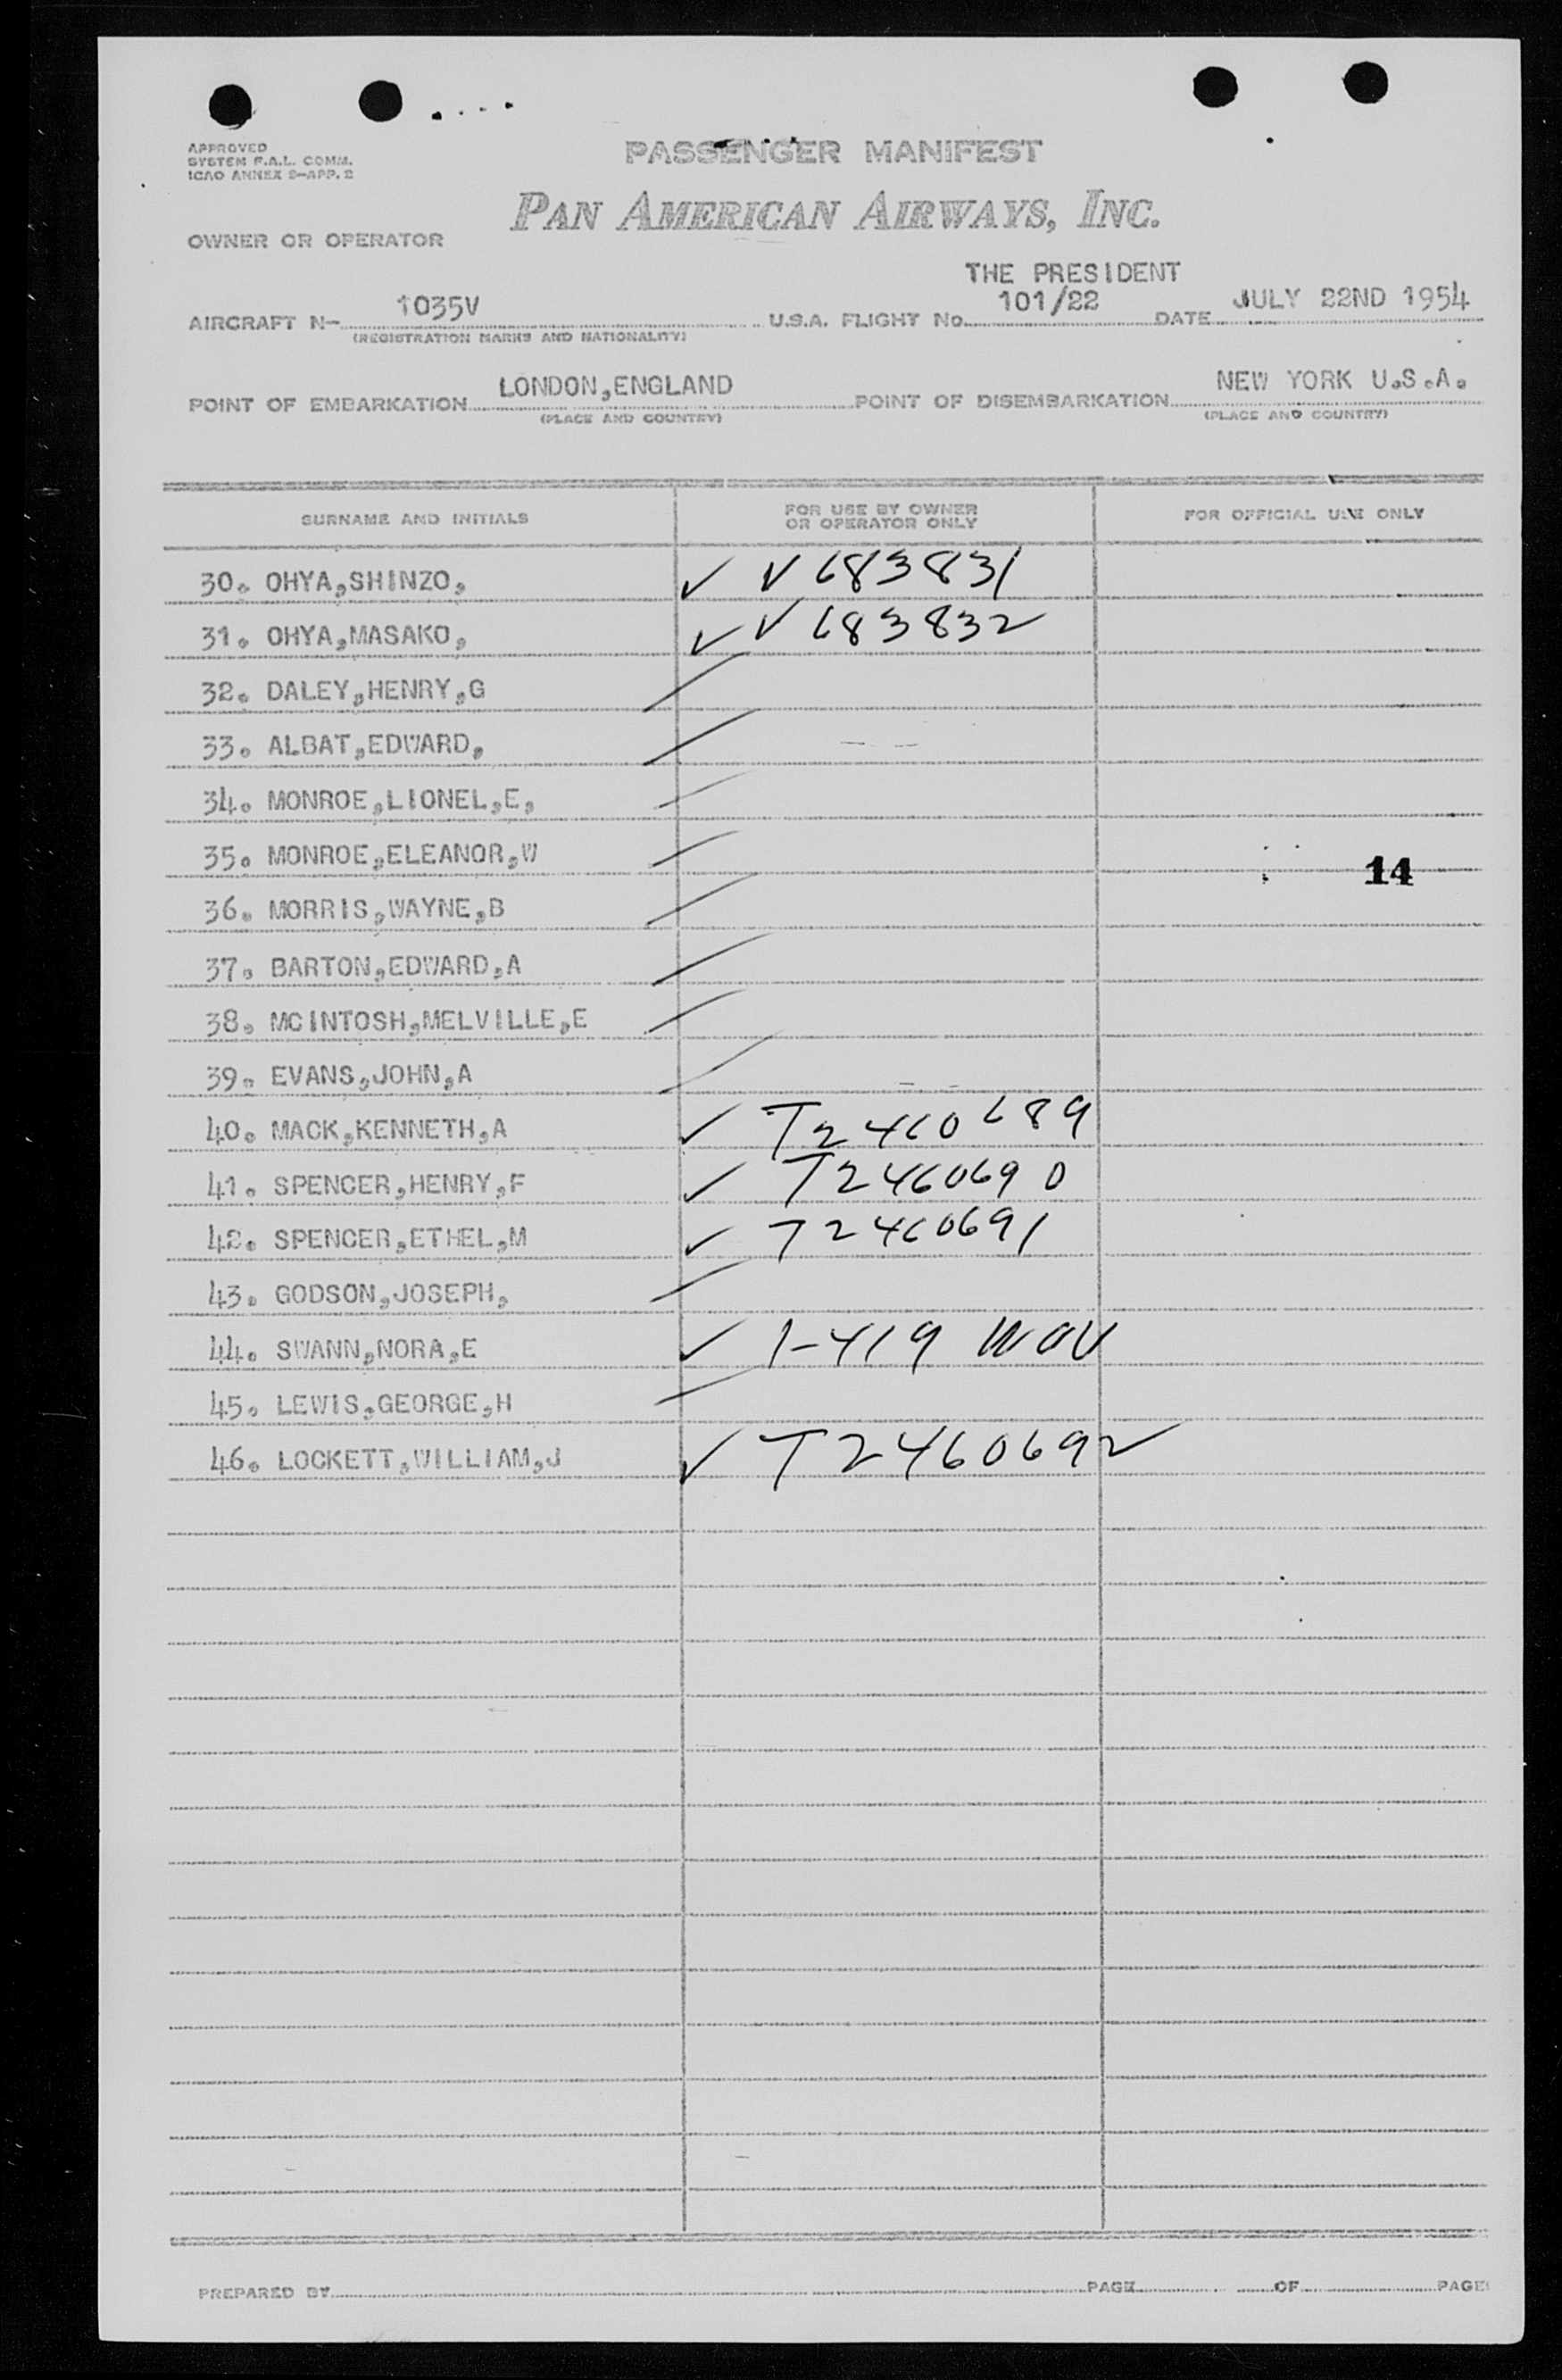 APPROVED
SYSTEM F.A.L. COMM.
ICAO ANNEX 9-APP. 2
PASSENGER MANIFEST
PAN AMERICAN AIRWAYS, INC.
OWNER OR OPERATOR
THE PRESIDENT
AIRCRAFT N- 1035V U.S.A. FLIGHT No. 101/22 DATE JULY 22ND 1954
(REGISTRATION MARKS AND NATIONALITY)
POINT OF EMBARKATION LONDON,ENGLAND POINT OF DISEMBARKATION NEW YORK U.S.A.
(PLACE AND COUNTRY) (PLACE AND COUNTRY)
SURNAME AND INITIALS FOR USE BY OWNER OR OPERATOR ONLY FOR OFFICIAL USE ONLY
30. OHYA,SHINZO, ✓ V683831
31. OHYA,MASAKO, ✓ V683832
32. DALEY,HENRY,G
33. ALBAT,EDWARD,
34. MONROE,LIONEL,E,
35. MONROE,ELEANOR,W
14
36. MORRIS,WAYNE,B
37. BARTON,EDWARD,A
38. MCINTOSH,MELVILLE,E
39. EVANS,JOHN,A
40. MACK,KENNETH,A ✓ T2460689
41. SPENCER,HENRY,F ✓ T2460690
42. SPENCER,ETHEL,M ✓ T2460691
43. GODSON,JOSEPH,
44. SWANN,NORA,E ✓ 1-419
45. LEWIS,GEORGE,H
46. LOCKETT,WILLIAM,J ✓ T2460692
PREPARED BY PAGE OF PAGE